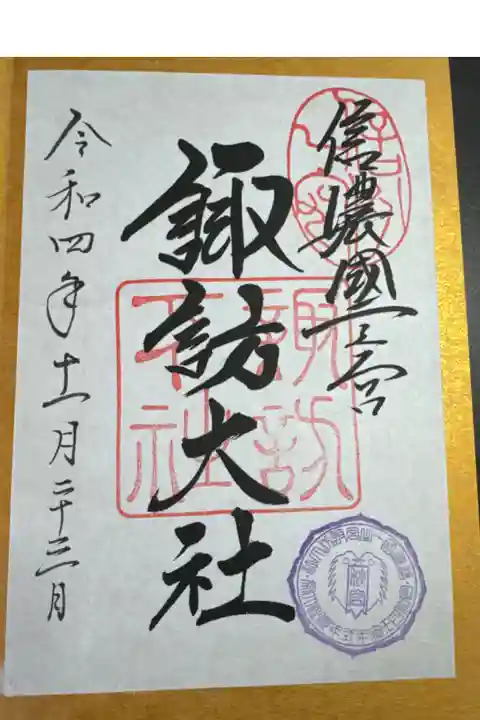 信濃國一之宮
諏訪大社
令和四年十一月二十三日
諏訪大社